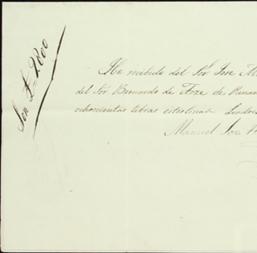 Son £ 2.800
He recibido del Sor Jose M
del Sor Bernardo de Yrze de Panam
ochocientas libras esterlinas Londres
Manuel Jose